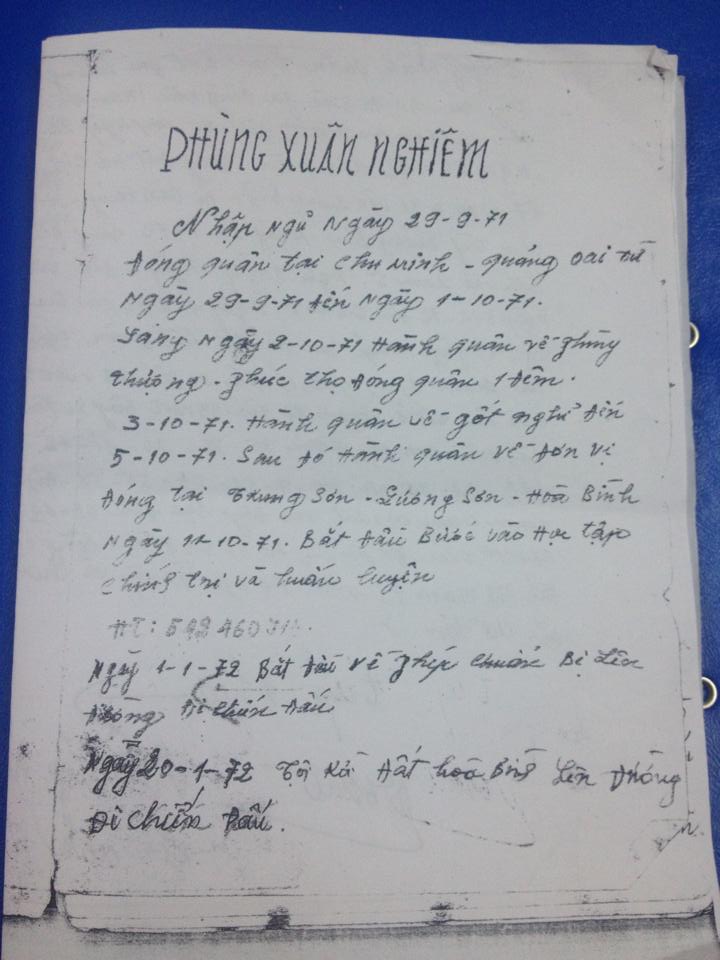 PHÙNG XUÂN NGHIÊM
Nhập ngũ Ngày 29-9-71
Đóng quân tại Chu Minh - Quảng Oai từ
Ngày 29-9-71 đến Ngày 1-10-71.
Sáng Ngày 2-10-71 Hành quân về Phụng
Thượng - Phúc Thọ đóng quân 1 đêm.
3-10-71. Hành quân về gốt nghỉ đến
5-10-71. Sau đó Hành quân về đơn vị
đóng tại Trung Sơn - Lương Sơn - Hoà Bình
Ngày 11-10-71. Bắt đầu Bước vào Học tập
chính trị và huấn luyện
HT:
Ngày 1-1-72 Bắt đầu về Phép chuẩn Bị Lên
đường Đi chiến Đấu
Ngày 20-1-72 Đất hoà Bình Lên đường
Đi chiến Đấu.